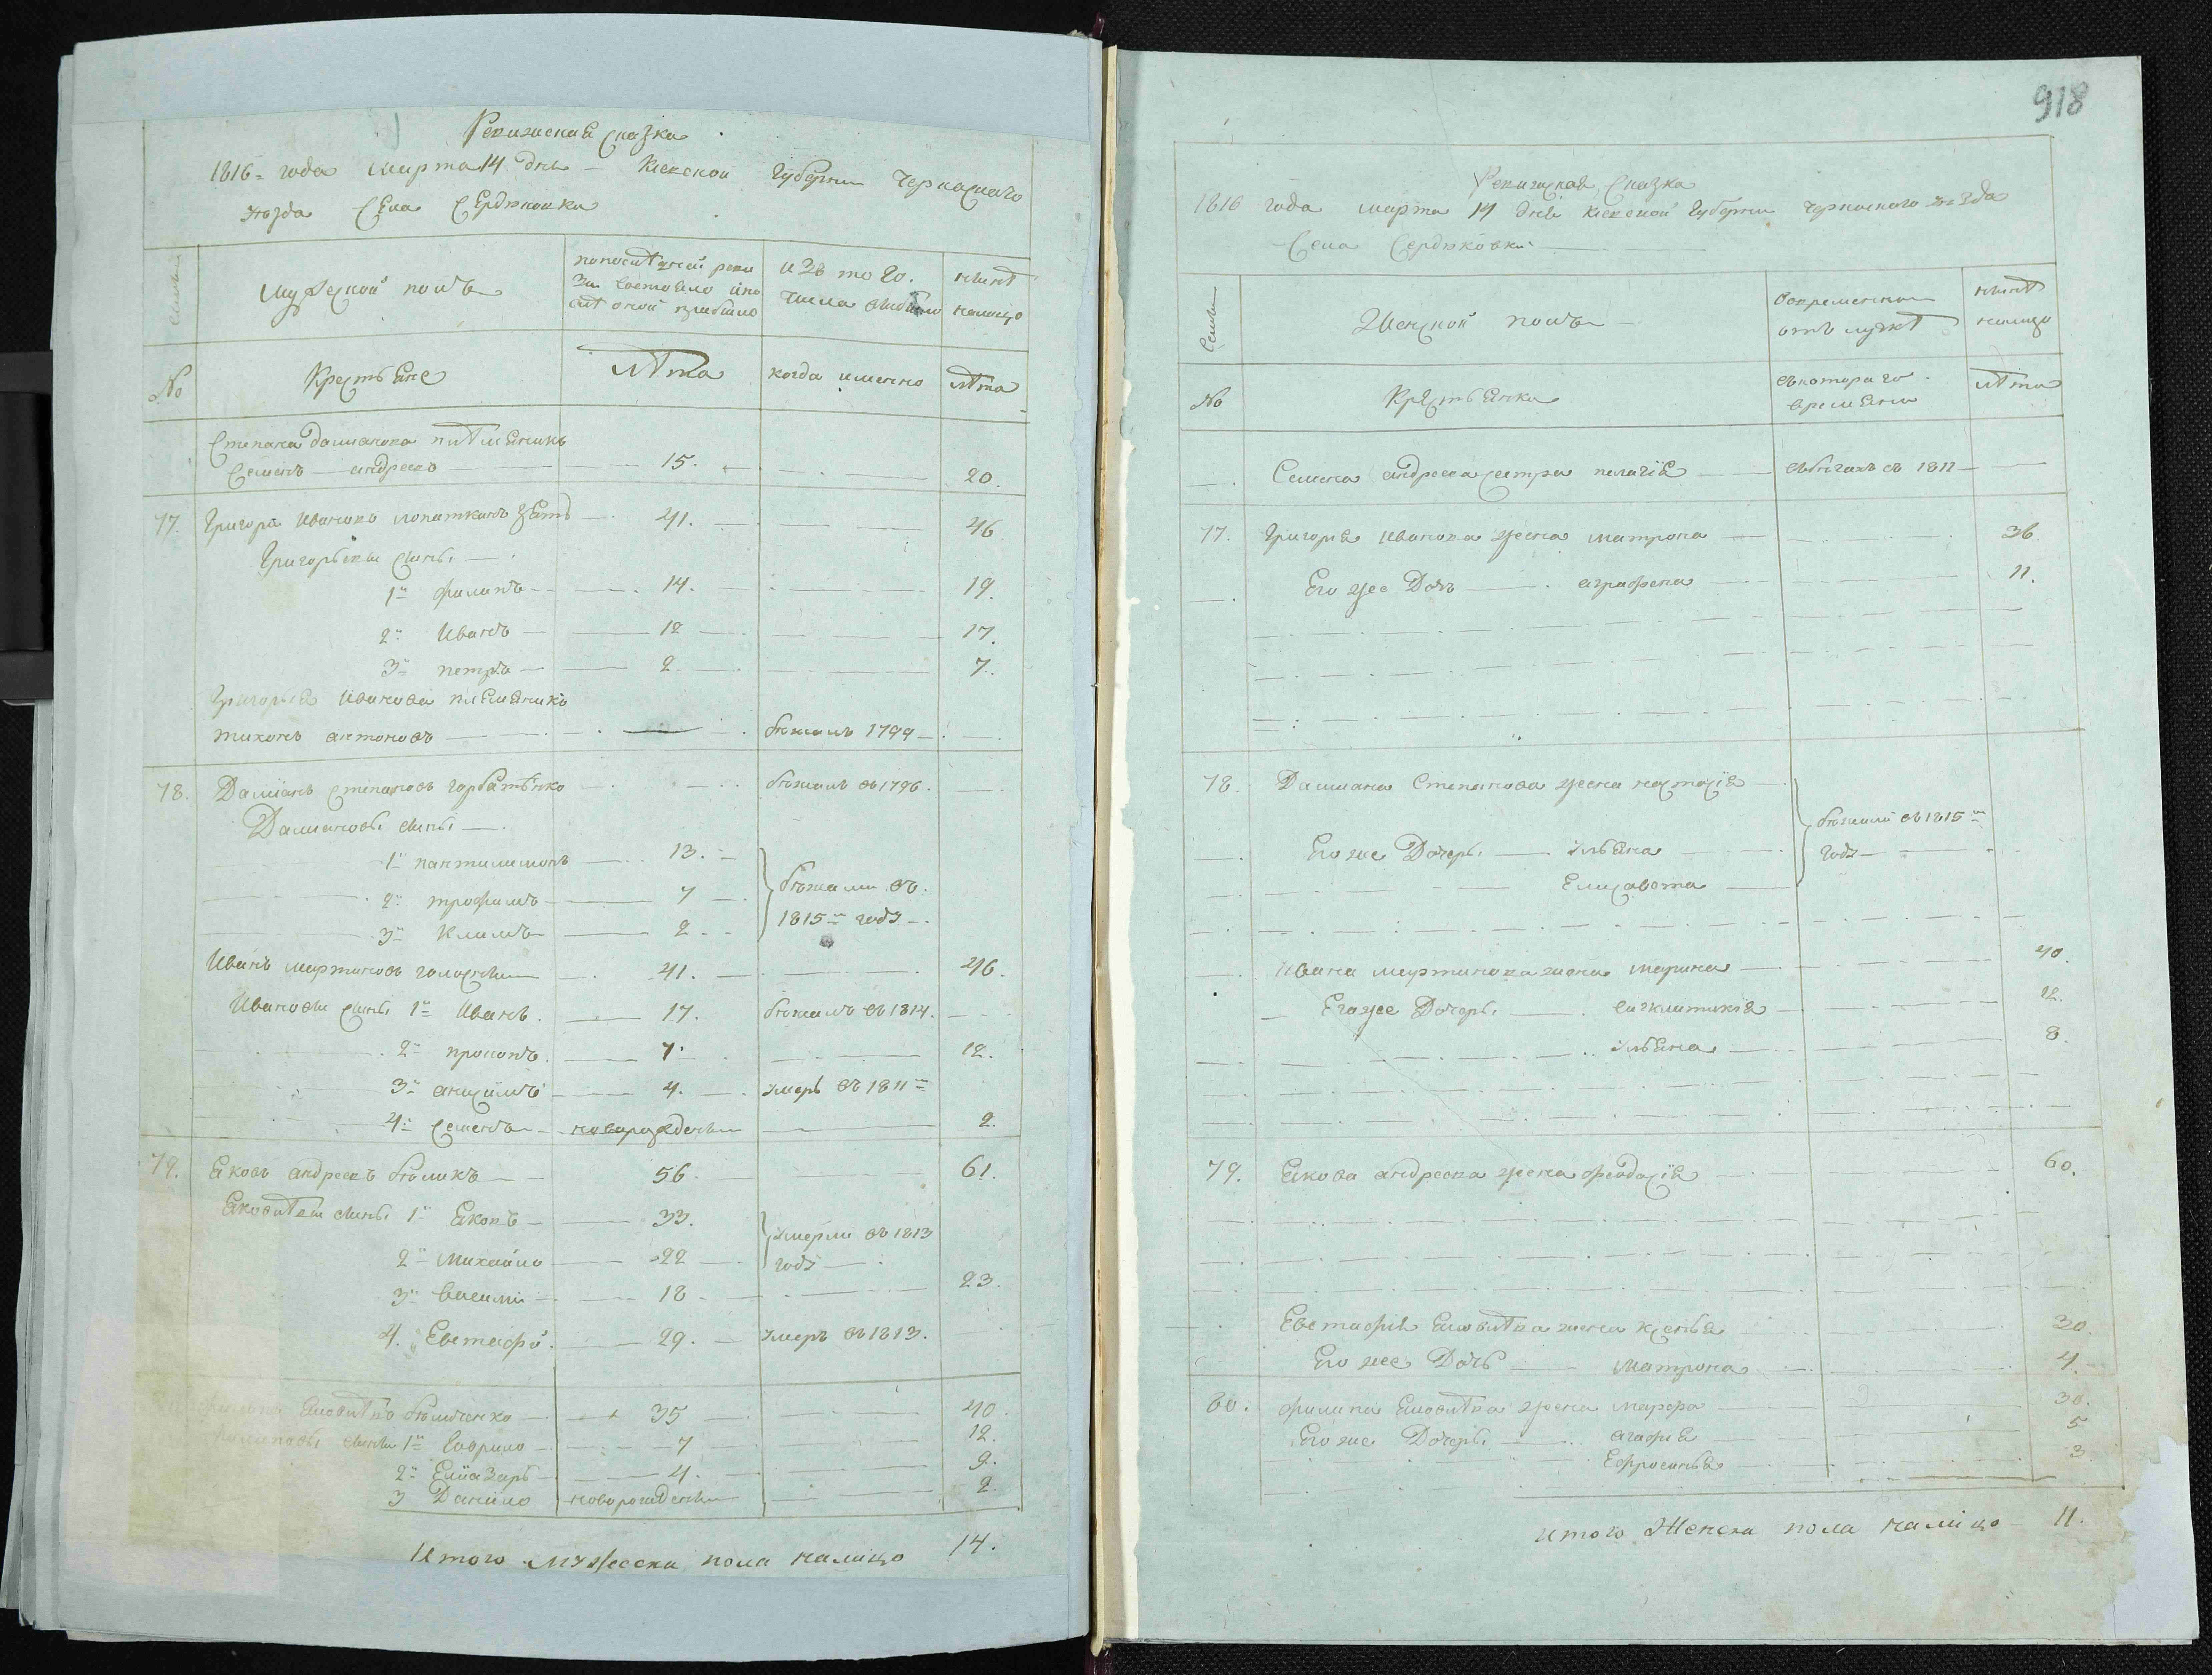 Ревижская Сказка
1816 = года марта 14 дня – Киевской Губернии Черкаскаго
уѣзда Села Сердюковки
Семьи
Мужеской полъ
по последней реви
зіи состояло и по
слѣ оной прибыло
Изъ того
числа выбыло
нынѣ
налицо
№
Крестьяне
лѣта
когда именно
лѣта
Степана Дамианова племянникъ
Семенъ андреевъ 15. 20.
77. Григорій Ивановъ лопаткинъ зять 41. 46
Григорьевы сыны
1й филипъ 14. 19.
2й Иванъ 12 17.
3й петръ 2 7.
Григорья Иванова племяникъ
тихонъ антоновъ бѣжалъ 1799
78. Дамианъ степановъ горбатенко бѣжалъ въ 1796.
Дамиановы сыны
1й пантилимонъ 13.
2й трофимъ 7 бѣжали въ
3й Климъ 2 1815м году
Иванъ мартиновъ 41. 46.
Ивановы сыны 1й Иванъ. 17. бѣжалъ въ 1814.
2й прокопъ. 7. 12.
3й анисимъ 4. умеръ въ 1811м
4й семенъ новорожденны 2.
79. Яковъ андреевъ бѣликъ 56. 61.
Яковлевы сыны 1й Яковъ 33. умерли въ 1813
2й Михайло 22 году
3й василій 18 23.
4. Евстафій. 29. умеръ въ 1813.
Яковлевъ бѣличенко 35 40.
филиповы сыны 1й Гаврило 7 12.
2й Еліазаръ 4. 9.
3 Данило новорожденны 2.
Итого мужеска пола налицо 14.
918
Ревижская Сказка
1816 года марта 14 дня Киевской Губернии Черкаскаго уѣзда
Села Сердюковки
Семьи
Женской полъ
во временной
отлучкѣ
нынѣ
налицо
№
Крестьянки
съ котораго
времени
лѣта
Семена андреева сестра пелагія въ бѣгахъ съ 1811
77. Григорія Иванова жена матрона 36
Его же Дочь аграфена 11.
78. Дамиана Степанова жена настасія
бѣжали въ 1815м
Его же Дочеры ульяна году
Елисавета
Ивана мартинова жена марина 40.
Его же Дочеры сигклитикія 12.
ульяна 8.
79. Якова андреева жена феодосія 60.
Евстафія Яковлева жена ксенья 30
Его же Дочь матрона 4.
80. филипа Яковлева жена марфа 30.
Его же Дочеры агафія 5
Ефросинья 3
Итого Женска пола налицо 11.